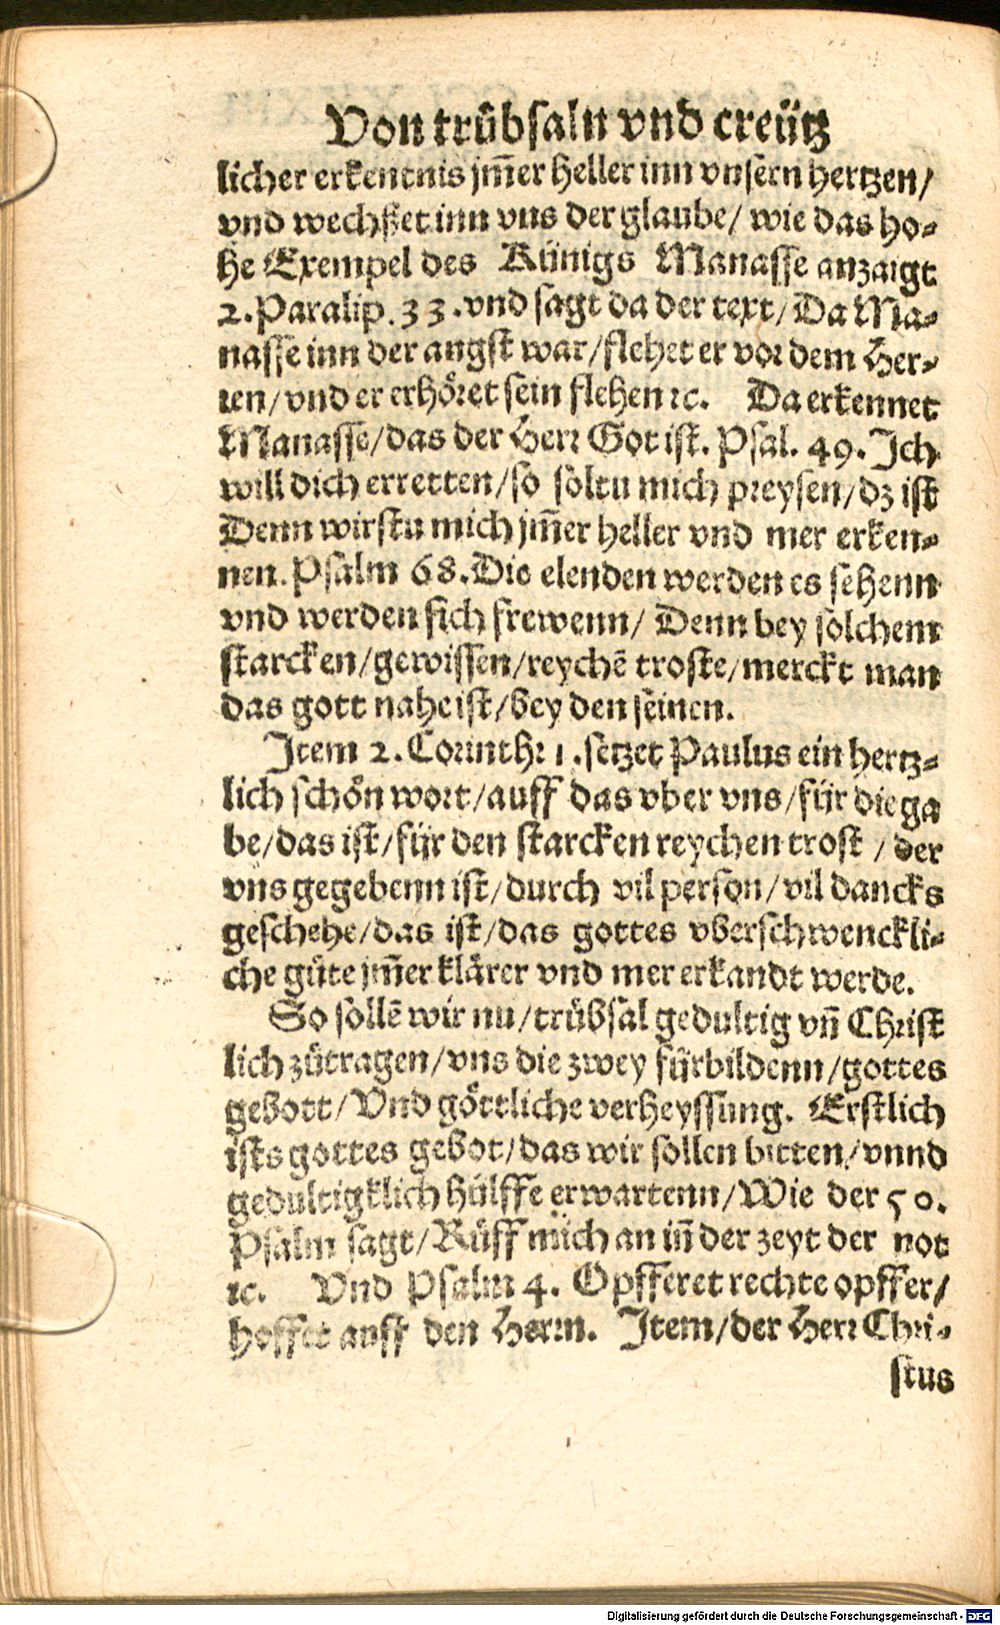 Von trübsaln vnd creütz
licher erkentnis jm̃er heller inn vnsern hertzen/
vnd wechßet inn vns der glaube/ wie das ho⸗
he Exempel des Künigs Manasse anzaigt
2. Paralip. 33. vnd sagt da der text/ Da Ma⸗
nasse inn der angst war/ flehet er vor dem Her⸗
ren/ vnd er erhöret sein flehen ꝛc. Da erkennet
Manasse/ das der Herr Got ist. Psal. 49. Ich
will dich erretten/ so soltu mich preysen/ dz ist
Denn wirstu mich jm̃er heller vnd mer erken⸗
nen. Psalm 68. Die elenden werden es sehenn
vnd werden sich frewenn/ Denn bey solchem
starcken/ gewissen/ reychē troste/ merckt man
das gott nahe ist/ bey den seinen.
Item 2. Corinth: 1. setzet Paulus ein hertz⸗
lich schön wort/ auff das vber vns/ für die ga
be/ das ist/ für den starcken reychen trost / der
vns gegebenn ist/ durch vil person/ vil dancks
geschehe/ das ist/ das gottes vberschwenckli⸗
che güte jm̃er klärer vnd mer erkandt werde.
So sollē wir nu/ trübsal gedultig vñ Christ
lich zůtragen/ vns die zwey fürbildenn/ gottes
gebott/ Vnd göttliche verheyssung. Erstlich
ists gottes gebot/ das wir sollen bitten/ vnnd
gedultigklich hülffe erwartenn/ Wie der 50.
Psalm sagt/ Rüff mich an iñ der zeyt der not
ꝛc. Vnd Psalm 4. Opfferet rechte opffer/
hoffet auff den Herrn. Item/ der Herr Chri⸗
stus
Digitalisierung gefördert durch die Deutsche Forschungsgemeinschaft - DFG